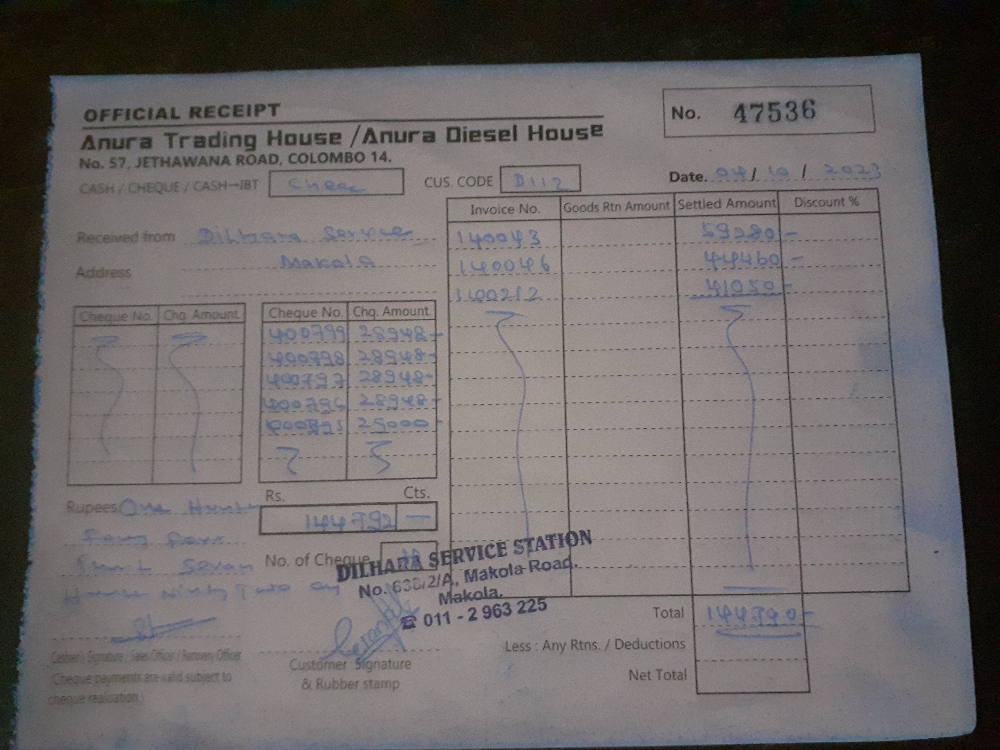 OFFICIAL RECEIPT
No. 47536
Anura Trading House /Anura Diesel House
No. 57, JETHAWANA ROAD, COLOMBO 14.
CASH / CHEQUE / CASH→IBT
CUS. CODE D112
Date. 04/10/2023
Received from Dilhara Service
Address Makola
Invoice No. Goods Rtn Amount Settled Amount Discount %
140043 59280-
140046 44460-
140212 41050-
Cheque No. Chq. Amount Cheque No. Chq. Amount
400799 28948-
400798 28948-
400797 28948-
400796 28948-
25000-
Rs. Cts.
144792 —
Rupees One
Ninety Two
No. of Cheque
DILHARA SERVICE STATION
No. 638/2/A, Makola Road,
Makola.
☎ 011 - 2 963 225
Total 144790-
Less : Any Rtns. / Deductions
Net Total
Cashier's Signature / Sales Officer / Recovery Officer
(Cheque payments are valid subject to
cheque realisation.)
Customer Signature
& Rubber stamp